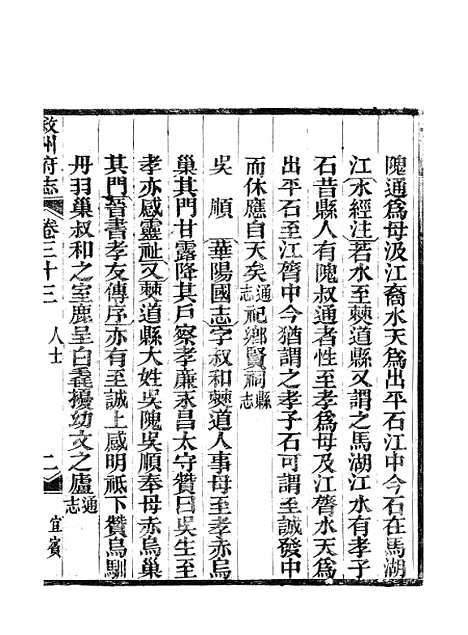 隗通爲母汲江裔水天爲出平石江中今石在馬湖
江水經注若水至僰道縣又謂之馬湖江水有孝子
石昔縣人有隗叔通者性至孝爲母及江膂水天爲
出平石至江膂中今猶謂之孝子石可謂至誠發中
而休應自天矣通志祀鄉賢祠縣志
吳順華陽國志字叔和僰道人事母至孝赤烏
巢其門甘露降其戶察孝廉永昌太守贊曰吳生至
孝亦感靈祉又僰道縣大姓吳隗吳順奉母赤烏巢
其門晉書孝友傳序亦有至誠上感明祇下贊烏馴
丹羽巢叔和之室鹿呈白毳擾幼文之廬通志
敘州府志 卷三十三 人士 二 宜賓